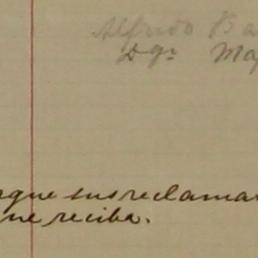 Alfredo Ba
Dgr. Ma
rque sus reclama
ue reciba.